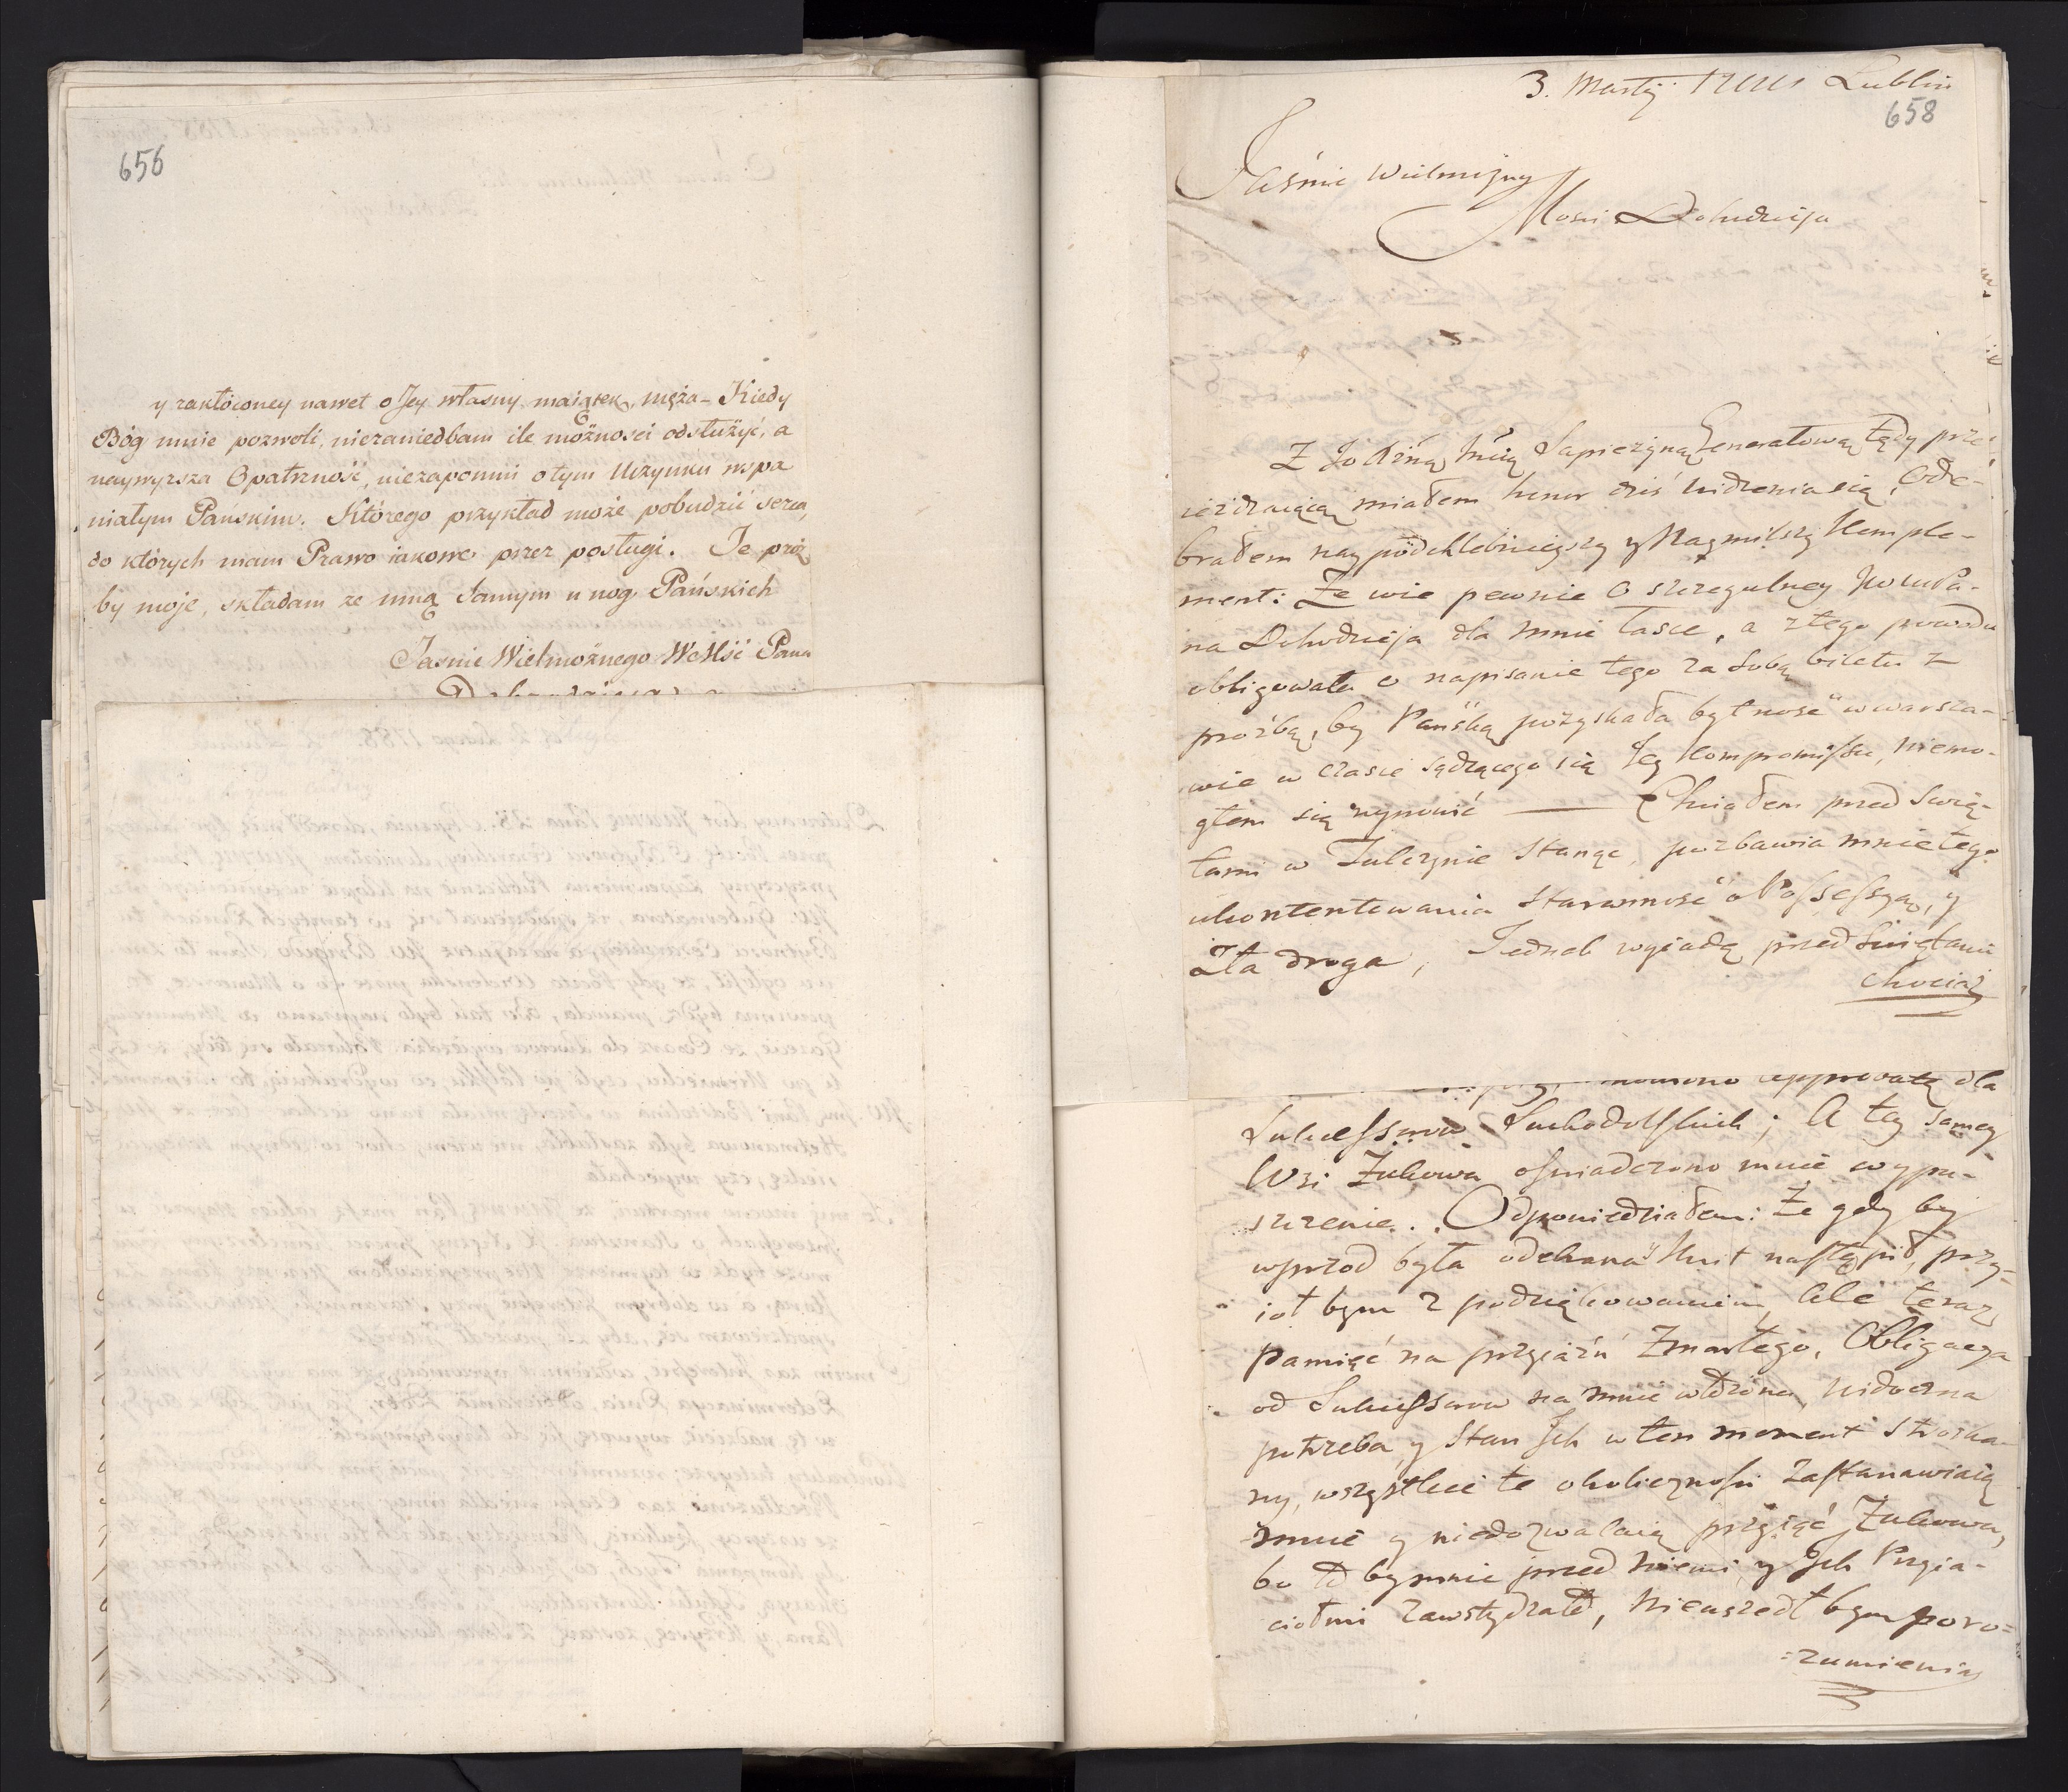 656
y zakłóconey nawet o Jey własny maiątek, męża - Kiedy
Bóg mnie pozwoli, niezaniedbam ile możnosci odsłużyć, a
naywyzsza Opatrzność, niezapomni o tym Uczynku wspa
niałym Pańskim. Którego przykład może pobudzić serca,
do których mam Prawo iakowe przez posługi. Te proź
by moje, składam ze mną samym u nog Pańskich
Jasnie Wielmożnego WcMśći Pana
3. Martij Lublin
658
Jaśnie Wielmożny
Mości Dobrodzieju
Z Sapieżyną Generałową tędy prze
ieżdzaiącą miałem honor dziś widzenia się, Ode-
brałem naypodchlebnieyszy y Naymilszy Komple-
ment: Że wie pewnie o szczegulney JWWPa-
na Dobodzieja dla mnie łasce, a z tego powodu
obligowała o napisanie tego za sobą biletu z
proźbą, by Pańską pozyskała bytność w Warsza-
wie w czasie sądzącego się Jey Kompromissu, niemo-
głem się wymowić — Chciałem przed Swię-
tami w Tulczynie stanąć, pozbawia mnie tego
ukontentowania starowność o Possessyą, y
Zła droga, Jednak wyiadę przed Swiętami
chociaż
mowiono approbatę dla
Sukcessorow Suchodolskich; A tey samey
Wsi Żukowa ofiiadczono mnie wypu-
szczenie.. Odpowiedziałem: Że gdy by
wprzod była odebrana y skut nastąpił, przy-
iął bym z podziękowaniem, Ale teraz
pamięć na przyiaźń Zmarłego, Obligacya
od Sukcessorow na mnie włożona, widoczna
potrzeba y Stan Jch w ten moment stroska-
ny, wszystkie te okolicznosci zastanawiaią
mnie y niedozwalaią przyiąć Żukowa,
bo to by mnie przed niemi y Jch Przyia-
ciołmi zawstydzało, nieuszedł bym poro=
=zumienia